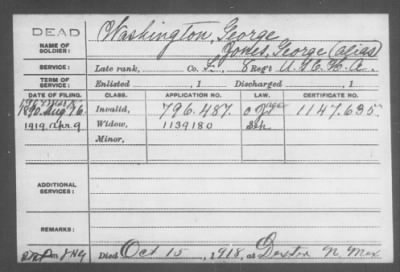 DEAD
NAME OF SOLDIER: Washington, George
Jones, George (alias)
SERVICE: Late rank, Co. F, 8 Reg't U.S.C.H.A.
TERM OF SERVICE: Enlisted , 1 Discharged , 1
DATE OF FILING. CLASS. APPLICATION NO. LAW. CERTIFICATE NO.
1890 Aug 16 Invalid, 796.487. 1147.635
1919, Apr. 9 Widow, 1139180
Minor,
ADDITIONAL SERVICES:
REMARKS:
Died Oct 15, 1918, at Dexter N. Mex